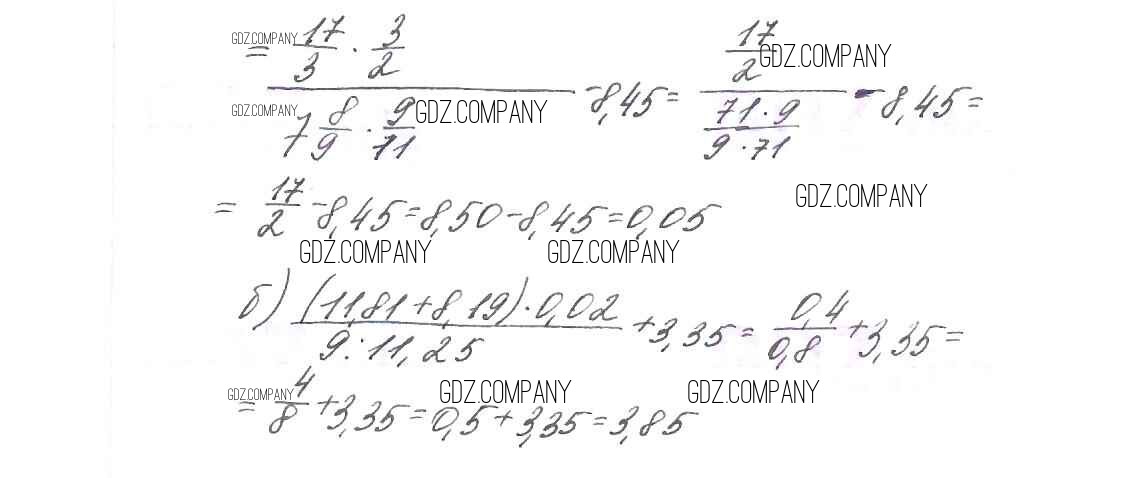 = 17/3 · 3/2 / 7 8/9 · 9/71 - 8,45 = 17/2 / 71·9/9·71 - 8,45 =
= 17/2 - 8,45 = 8,50 - 8,45 = 0,05
б) (11,81 + 8,19) · 0,02 / 9 : 11,25 + 3,35 = 0,4/0,8 + 3,35 =
= 4/8 + 3,35 = 0,5 + 3,35 = 3,85
GDZ.COMPANY
GDZ.COMPANY
GDZ.COMPANY
GDZ.COMPANY
GDZ.COMPANY
GDZ.COMPANY
GDZ.COMPANY
GDZ.COMPANY
GDZ.COMPANY
GDZ.COMPANY